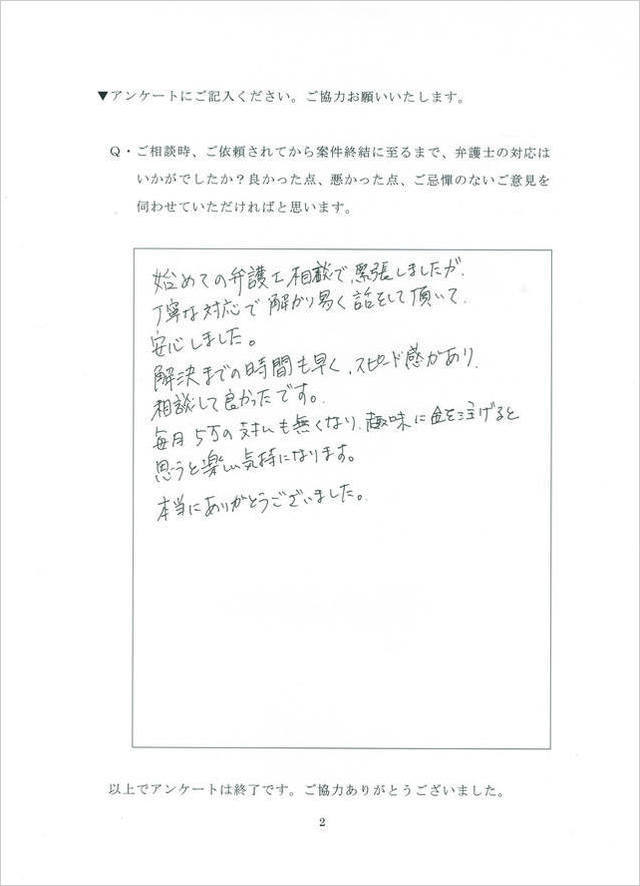 ▼アンケートにご記入ください。ご協力お願いいたします。
Q・ご相談時、ご依頼されてから案件終結に至るまで、弁護士の対応は
いかがでしたか？良かった点、悪かった点、ご忌憚のないご意見を
伺わせていただければと思います。
始めての弁護士相談で、緊張しましたが、
丁寧な対応で解かり易く話をして頂いて、
安心しました。
解決までの時間も早く、スピード感があり、
相談して良かったです。
毎月5万の支払いも無くなり、趣味に金を注げると
思うと楽しい気持になります。
本当にありがとうございました。
以上でアンケートは終了です。ご協力ありがとうございました。
2